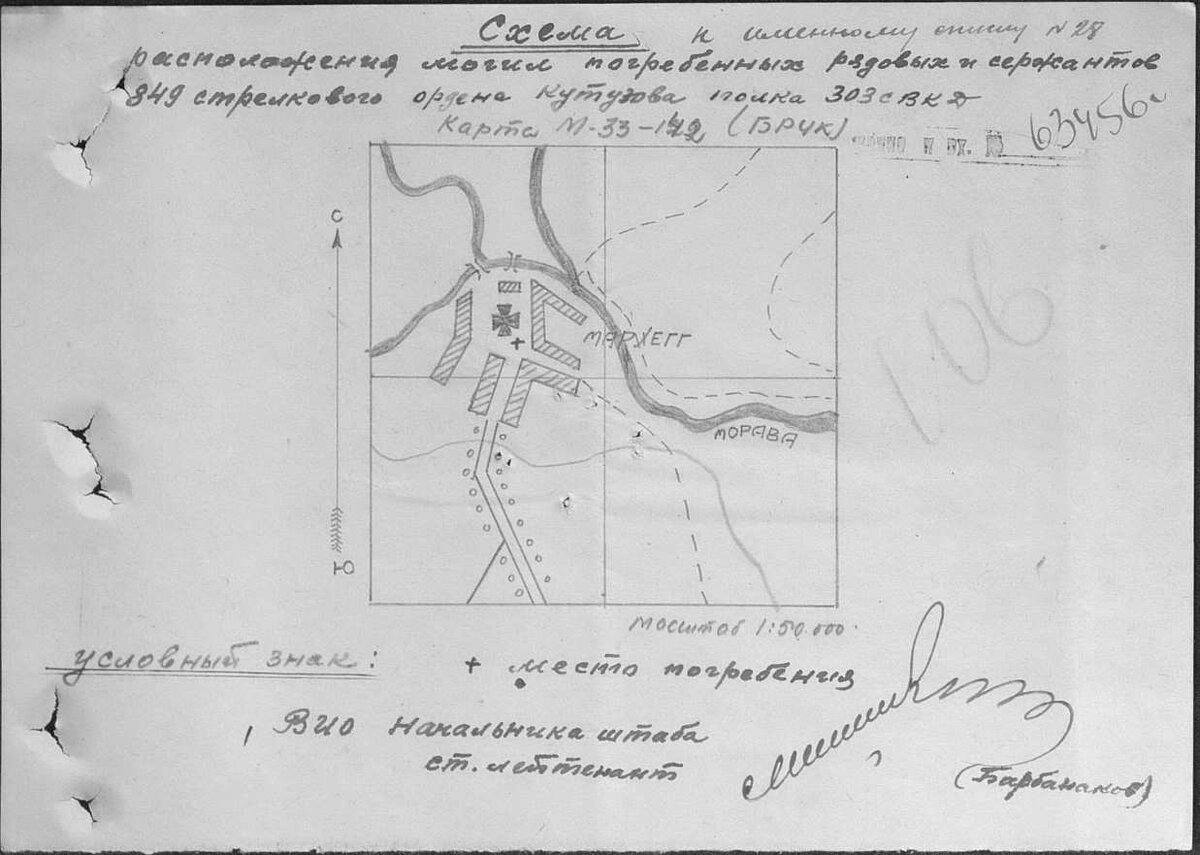 Схема к именному списку № 28
расположения могил погребенных рядовых и сержантов
849 стрелкового ордена Кутузова полка 303 сВКД
Карта М-33-142 (БРУК)
и вх. № 63456с
С
106
МАРХЕГГ
МОРАВА
Ю
Масштаб 1:50.000
условный знак:
+ место погребения
ВИО начальника штаба
ст. лейтенант
(Барбанаков)